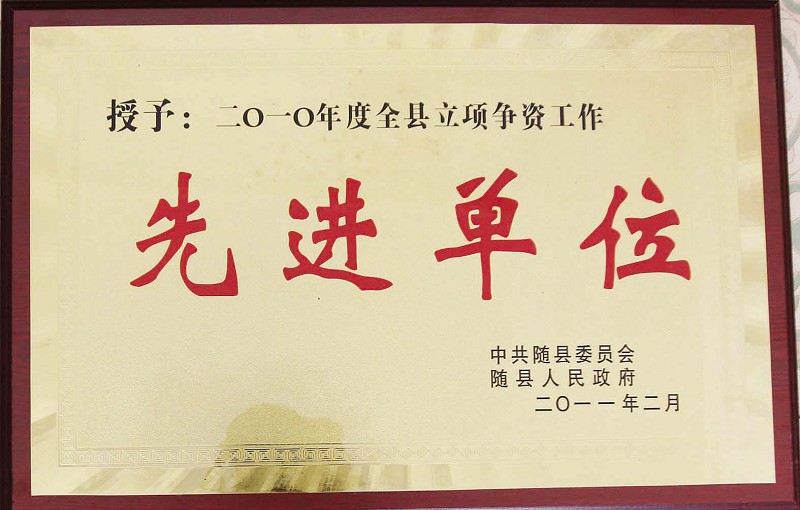 授予：二〇一〇年度全县立项争资工作
先进单位
中共随县委员会
随县人民政府
二〇一一年二月